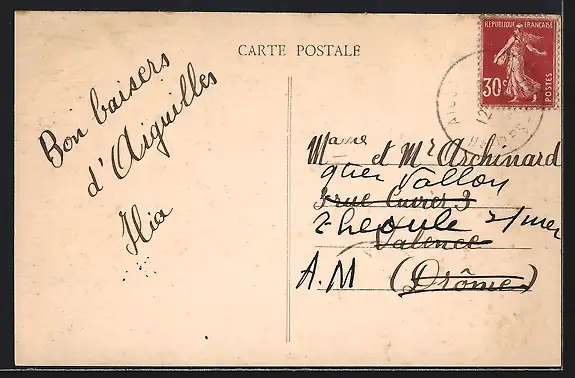 CARTE POSTALE
RÉPUBLIQUE FRANÇAISE
30c
POSTES
Bon baisers
d'Aiguilles
Mame et Mr Archinard
qtier Vallon
3 rue Cuvier 3
Theoule s/mer
Valence
A.M (Drôme)